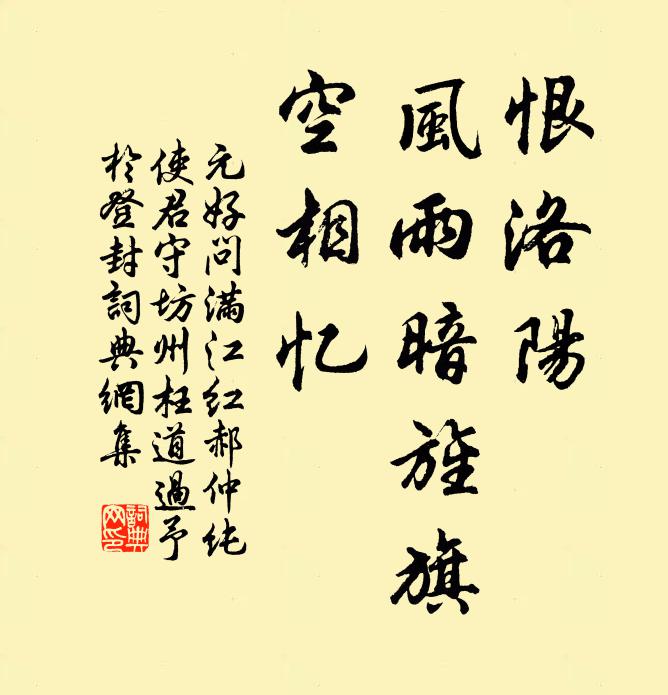 恨洛陽
風雨暗旌旗
空相忆
元好问滿江红郝仲纯
使君守坊州枉道過予
於登封詞典網集
詞典网印